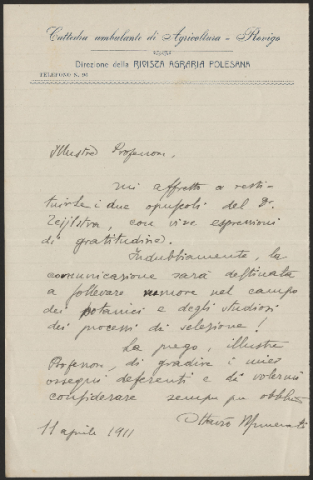 Cattedra ambulante di Agricoltura - Rovigo
Direzione della RIVISTA AGRARIA POLESANA
TELEFONO N. 90
Illustre Professore,
mi affretto a resti-
tuirle i due opuscoli del Dr.
Zeijlstra, con vive espressioni
di gratitudine.
Indubbiamente, la
comunicazione sarà destinata
a sollevare rumore nel campo
dei botanici e degli studiosi
dei processi di selezione!
La prego, illustre
Professore, di gradire i miei
ossequi deferenti e di volermi
considerare sempre suo obbl.mo
Ottavio Munerati
11 aprile 1911